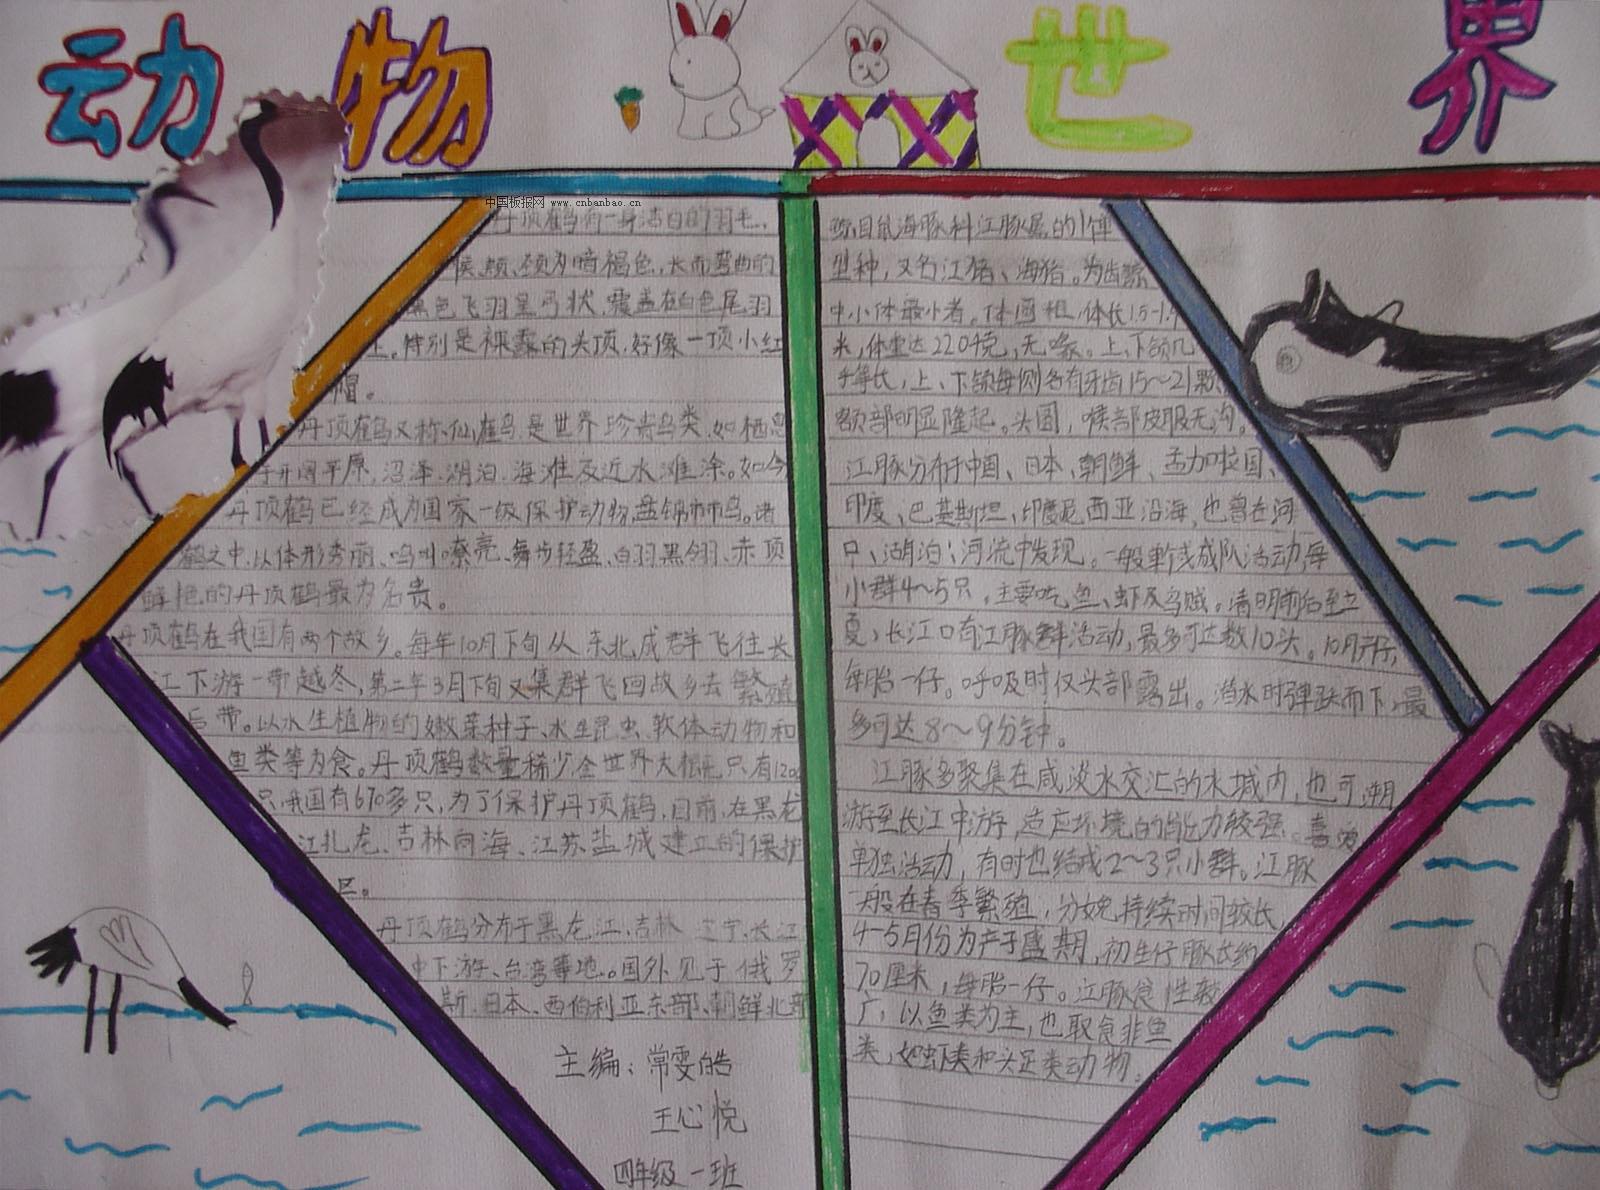 动物世界
中国板报网 www.cnbanbao.cn
丹顶鹤有一身洁白的羽毛,
喉、颊、颈为暗褐色,长而弯曲的
黑色飞羽呈弓状,覆盖在白色尾羽
上。特别是裸露的头顶,好像一顶小红
帽。
丹顶鹤又称仙鹤,是世界珍贵鸟类,如栖息
于开阔平原、沼泽、湖泊、海滩及近水滩涂。如今
丹顶鹤已经成为国家一级保护动物,盘锦市市鸟。诸
鹤之中,以体形秀丽、鸣叫嘹亮、舞步轻盈、白羽黑翎、赤顶
鲜艳的丹顶鹤最为名贵。
丹顶鹤在我国有两个故乡。每年10月下旬从东北成群飞往长
江下游一带越冬,第二年3月下旬又集群飞回故乡去繁殖
后带。以水生植物的嫩芽种子、水生昆虫、软体动物和
鱼类等为食。丹顶鹤数量稀少,全世界大概只有1200
只,我国有670多只,为了保护丹顶鹤,目前,在黑龙
江扎龙、吉林向海、江苏盐城建立的保护
区。
丹顶鹤分布于黑龙江、吉林、辽宁、长江
中下游、台湾等地。国外见于俄罗
斯、日本、西伯利亚东部、朝鲜北部
主编:常雯皓
王心悦
四年级一班
鲸目鼠海豚科江豚属的1个单
型种,又名江猪、海猪。为齿鲸
中小体最小者。体圆粗,体长1.5-1.9
米,体重达220千克,无喙。上、下颌几
乎等长,上、下颌每侧各有牙齿15~21颗
额部明显隆起。头圆,喉部皮肤无沟。
江豚分布于中国、日本、朝鲜、孟加拉国、
印度、巴基斯坦、印度尼西亚沿海,也曾在河
口、湖泊、河流中发现。一般单个或成队活动,每
小群4~5只,主要吃鱼、虾及乌贼。清明前后至立
夏,长江口有江豚群活动,最多可达数10头。10月产仔,
每胎一仔。呼吸时仅头部露出。潜水时弹跃而下,最
多可达8~9分钟。
江豚多聚集在咸淡水交汇的水域内,也可溯
游至长江中游,适应环境的能力较强。喜爱
单独活动,有时也结成2~3只小群。江豚
一般在春季繁殖,分娩持续时间较长,
4-5月份为产子盛期,初生仔豚长约
70厘米,每胎一仔。江豚食性较
广,以鱼类为主,也取食非鱼
类,如虾类和头足类动物。